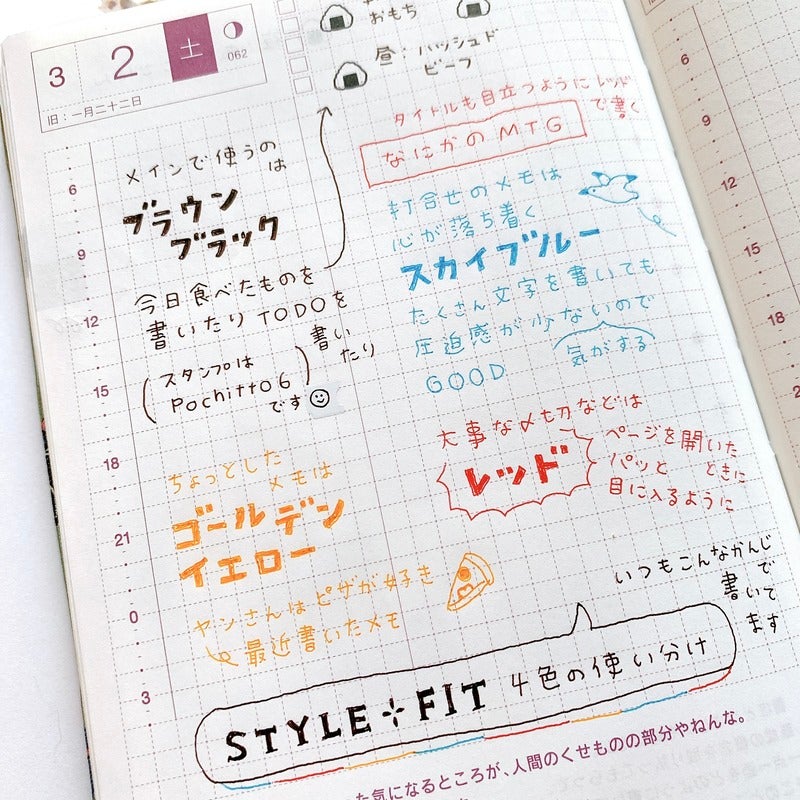 3 2 土
062
旧：一月二十二日
おもち
昼・ハッシュド
ビーフ
メインで使うの
は
ブラウン
ブラック
今日食べたものを
書いたりTODOを
書い
たり
(スタンプは
Pochitto6
です)
タイトルも目立つようにレッド
で書く
なにかのMTG
打合せのメモは
心が落ち着く
スカイブルー
たくさん文字を書いても
圧迫感が少ないので
気がする
GOOD
大事な〆切などは
レッド
ページを開いた
ときに
パッと
目に入るように
ちょっとした
メモは
ゴールデン
イエロー
ヤンさんはピザが好き
最近書いたメモ
いつもこんなかんじ
で
書いて
ます
STYLE FIT 4色の使い分け
た気になるところが、人間のくせものの部分やねんな。
6
9
12
15
18
21
0
3
6
9
12
15
18